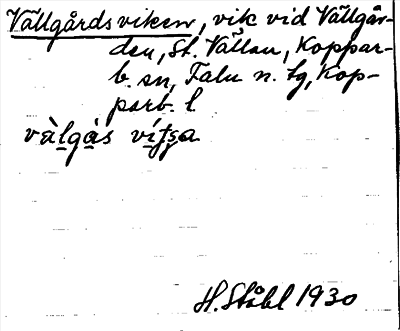 Vällgårdsviken, vik vid Vällgår-
den, St. Vällan, Koppar-
b. sn, Falu n. tg, Kop-
parb. l
vàl̲gås víṭṣa
H. Ståhl 1930